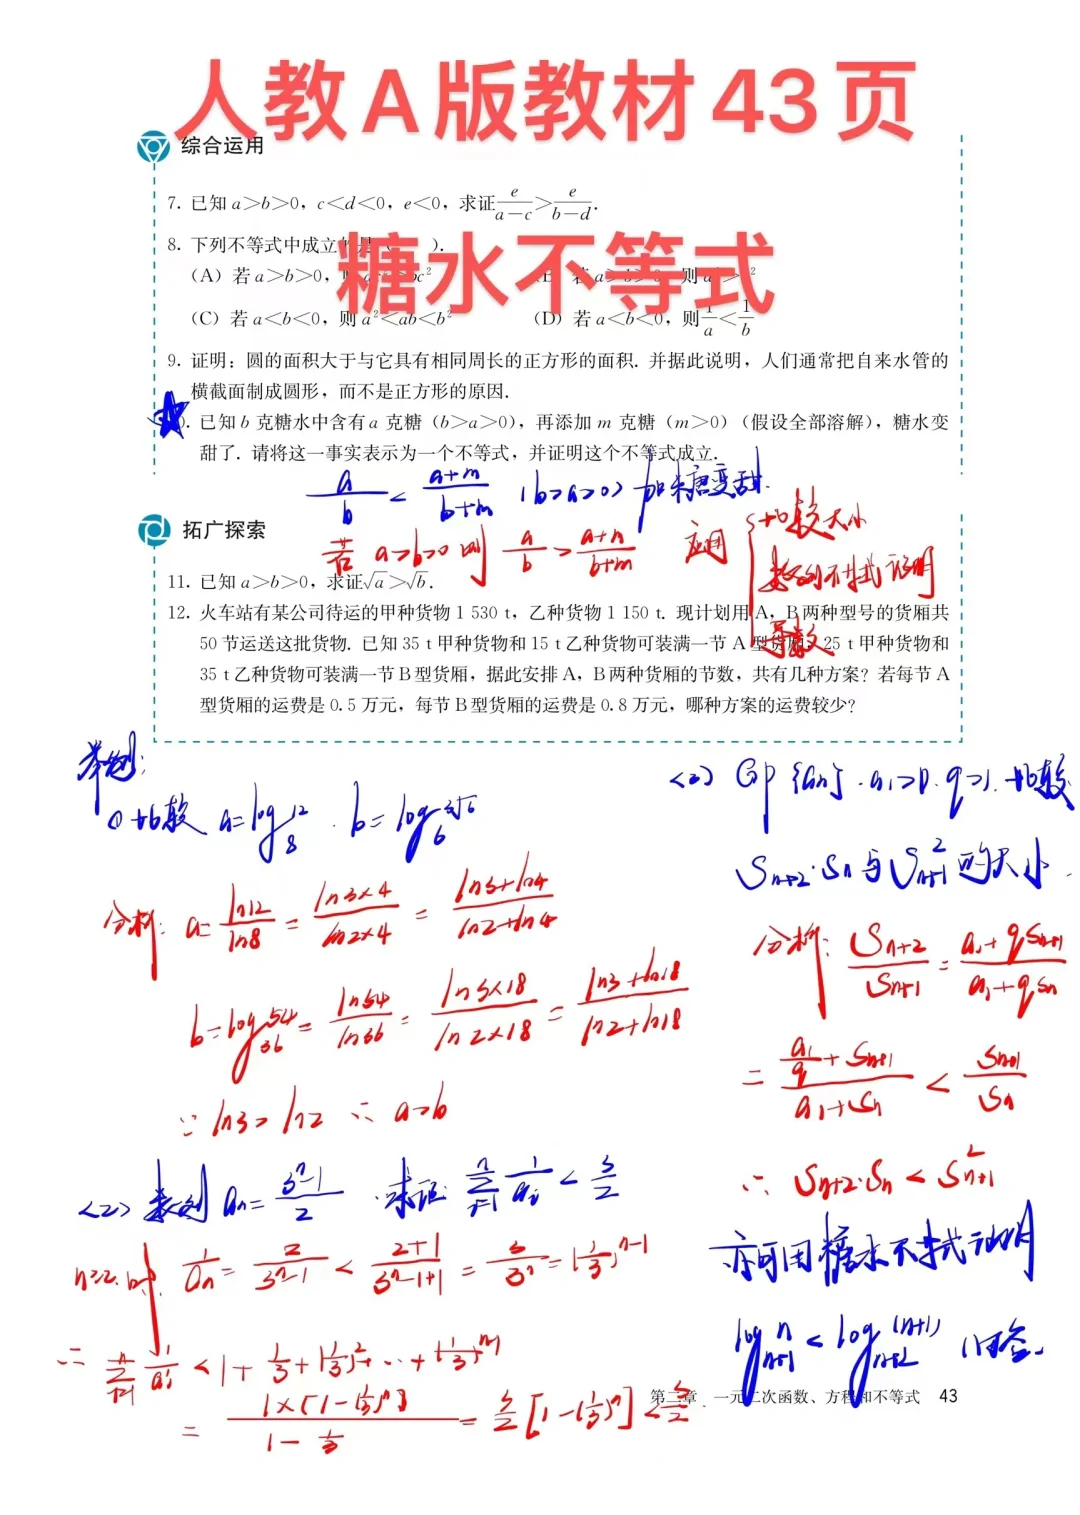 人教A版教材43页
综合运用
7. 已知 a>b>0，c<d<0，e<0，求证 e/(a-c) > e/(b-d).
糖水不等式
8. 下列不等式中成立
(A) 若 a>b>0，
则
(C) 若 a<b<0，则 a²<ab<b²
(D) 若 a<b<0，则 1/a < 1/b
9. 证明：圆的面积大于与它具有相同周长的正方形的面积. 并据此说明，人们通常把自来水管的
横截面制成圆形，而不是正方形的原因.
已知 b 克糖水中含有 a 克糖（b>a>0），再添加 m 克糖（m>0）（假设全部溶解），糖水变
甜了. 请将这一事实表示为一个不等式，并证明这个不等式成立.
a/b < (a+m)/(b+m) (b>a>0) 加糖变甜.
若 a>b>0 则 a/b > (a+m)/(b+m) 应用
比较大小
数列不等式证明
导数
拓广探索
11. 已知 a>b>0，求证 √a>√b.
12. 火车站有某公司待运的甲种货物 1 530 t，乙种货物 1 150 t. 现计划用 A，B 两种型号的货厢共
50 节运送这批货物. 已知 35 t 甲种货物和 15 t 乙种货物可装满一节 A 型货厢，25 t 甲种货物和
35 t 乙种货物可装满一节 B 型货厢，据此安排 A，B 两种货厢的节数，共有几种方案？若每节 A
型货厢的运费是 0.5 万元，每节 B 型货厢的运费是 0.8 万元，哪种方案的运费较少？
举例：
比较 a=log₈12 . b=log₆
分析: a= ln12/ln8 = ln3×4/ln2×4 = (ln3+ln4)/(ln2+ln4)
b=log₃₆54 = ln54/ln36 = ln3×18/ln2×18 = (ln3+ln18)/(ln2+ln18)
∵ ln3>ln2 ∴ a>b
<2> 数列 aₙ= (3ⁿ-1)/2 . 求证: Σ 1/aᵢ < 3/2
n≥2时. 1/aₙ = 2/(3ⁿ-1) < (2+1)/(3ⁿ-1+1) = 3/3ⁿ = (1/3)ⁿ⁻¹
∴ Σ 1/aᵢ < 1+1/3+(1/3)²+…+(1/3)ⁿ⁻¹
= 1×[1-(1/3)ⁿ]/(1-1/3) = 3/2[1-(1/3)ⁿ]<3/2.
<3> GP {aₙ}. a₁>0. q>1. 比较
Sₙ₊₂·Sₙ与Sₙ₊₁²的大小.
分析: Sₙ₊₂/Sₙ₊₁ = (a₁+qSₙ₊₁)/(a₁+qSₙ)
= (a₁/q+Sₙ₊₁)/( +Sₙ) < Sₙ₊₁/Sₙ
∴ Sₙ₊₂·Sₙ < Sₙ₊₁²
亦可用糖水不等式证明
logₙ₊₁n < logₙ₊₂(n+1)
第二章 一元二次函数、方程和不等式 43